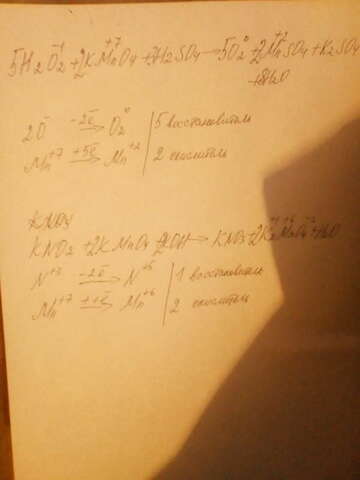 5H2O2⁻¹ + 2KMn⁺⁷O4 + 3H2SO4 → 5O2⁰ + 2Mn⁺²SO4 + K2SO4
+ 8H2O
2O⁻ —-2e̅→ O2⁰ | 5 восстановитель
Mn⁺⁷ —+5e̅→ Mn⁺² | 2 окислитель
KNO3
KNO2 + 2KMnO4 + 2KOH → KNO3 + 2K2⁺¹Mn⁺⁶O4⁻² + H2O
N⁺³ —-2e̅→ N⁺⁵ | 1 восстановитель
Mn⁺⁷ —+e̅→ Mn⁺⁶ | 2 окислитель